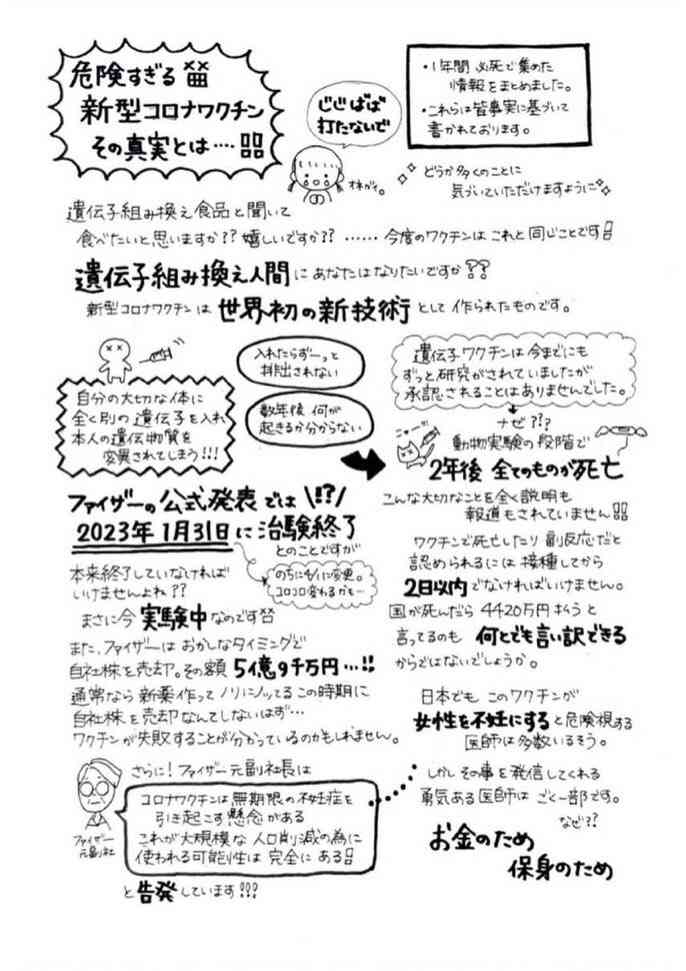 危険すぎる
新型コロナワクチン
その真実とは‥‥!!
じじばば
打たないで
オネガイ。
・1年間 必死で集めた
情報をまとめました。
・これらは皆事実に基づいて
書かれております。
どうか多くのことに
気づいていただけますように
遺伝子組み換え食品と聞いて
食べたいと思いますか?? 嬉しいですか?? …… 今度のワクチンはこれと同じことです!!
遺伝子組み換え人間にあなたはなりたいですか??
新型コロナワクチンは 世界初の新技術として作られたものです。
自分の大切な体に
全く別の遺伝子を入れ
本人の遺伝物質を
変異されてしまう!!!
入れたらずーっと
排出されない
数年後 何が
起きるか分からない
遺伝子ワクチンは今までにも
ずっと研究がされていましたが
承認されることはありませんでした。
ナゼ???
動物実験の段階で
2年後 全てのものが死亡
こんな大切なことを全く説明も
報道もされていません!!
ファイザーの公式発表では!!??
2023年1月31日に治験終了
とのことですが
のちに5/2に変更。
コロコロ変わるかも…
本来終了していなければ
いけませんよね??
まさに今 実験中なのです
また、ファイザーはおかしなタイミングで
自社株を売却。その額 5億9千万円…!!
通常なら新薬作ってノリにノッてるこの時期に
自社株を売却なんてしないはず…
ワクチンが失敗することが分かっているのかもしれません。
ワクチンで死亡したり 副反応だと
認められるには 接種してから
2日以内でなければいけません。
国が死んだら 4420万円払うと
言ってるのも 何とでも言い訳できる
からではないでしょうか。
日本でも このワクチンが
女性を不妊にすると危険視する
医師は多数いるそう。
しかし その事を発信してくれる
勇気ある医師は ごく一部です。
なぜ??
お金のため
保身のため
さらに! ファイザー元副社長は
ファイザー
元副社
コロナワクチンは無期限の不妊症を
引き起こす懸念がある
これが大規模な人口削減の為に
使われる可能性は 完全にある!!
と告発しています!!!